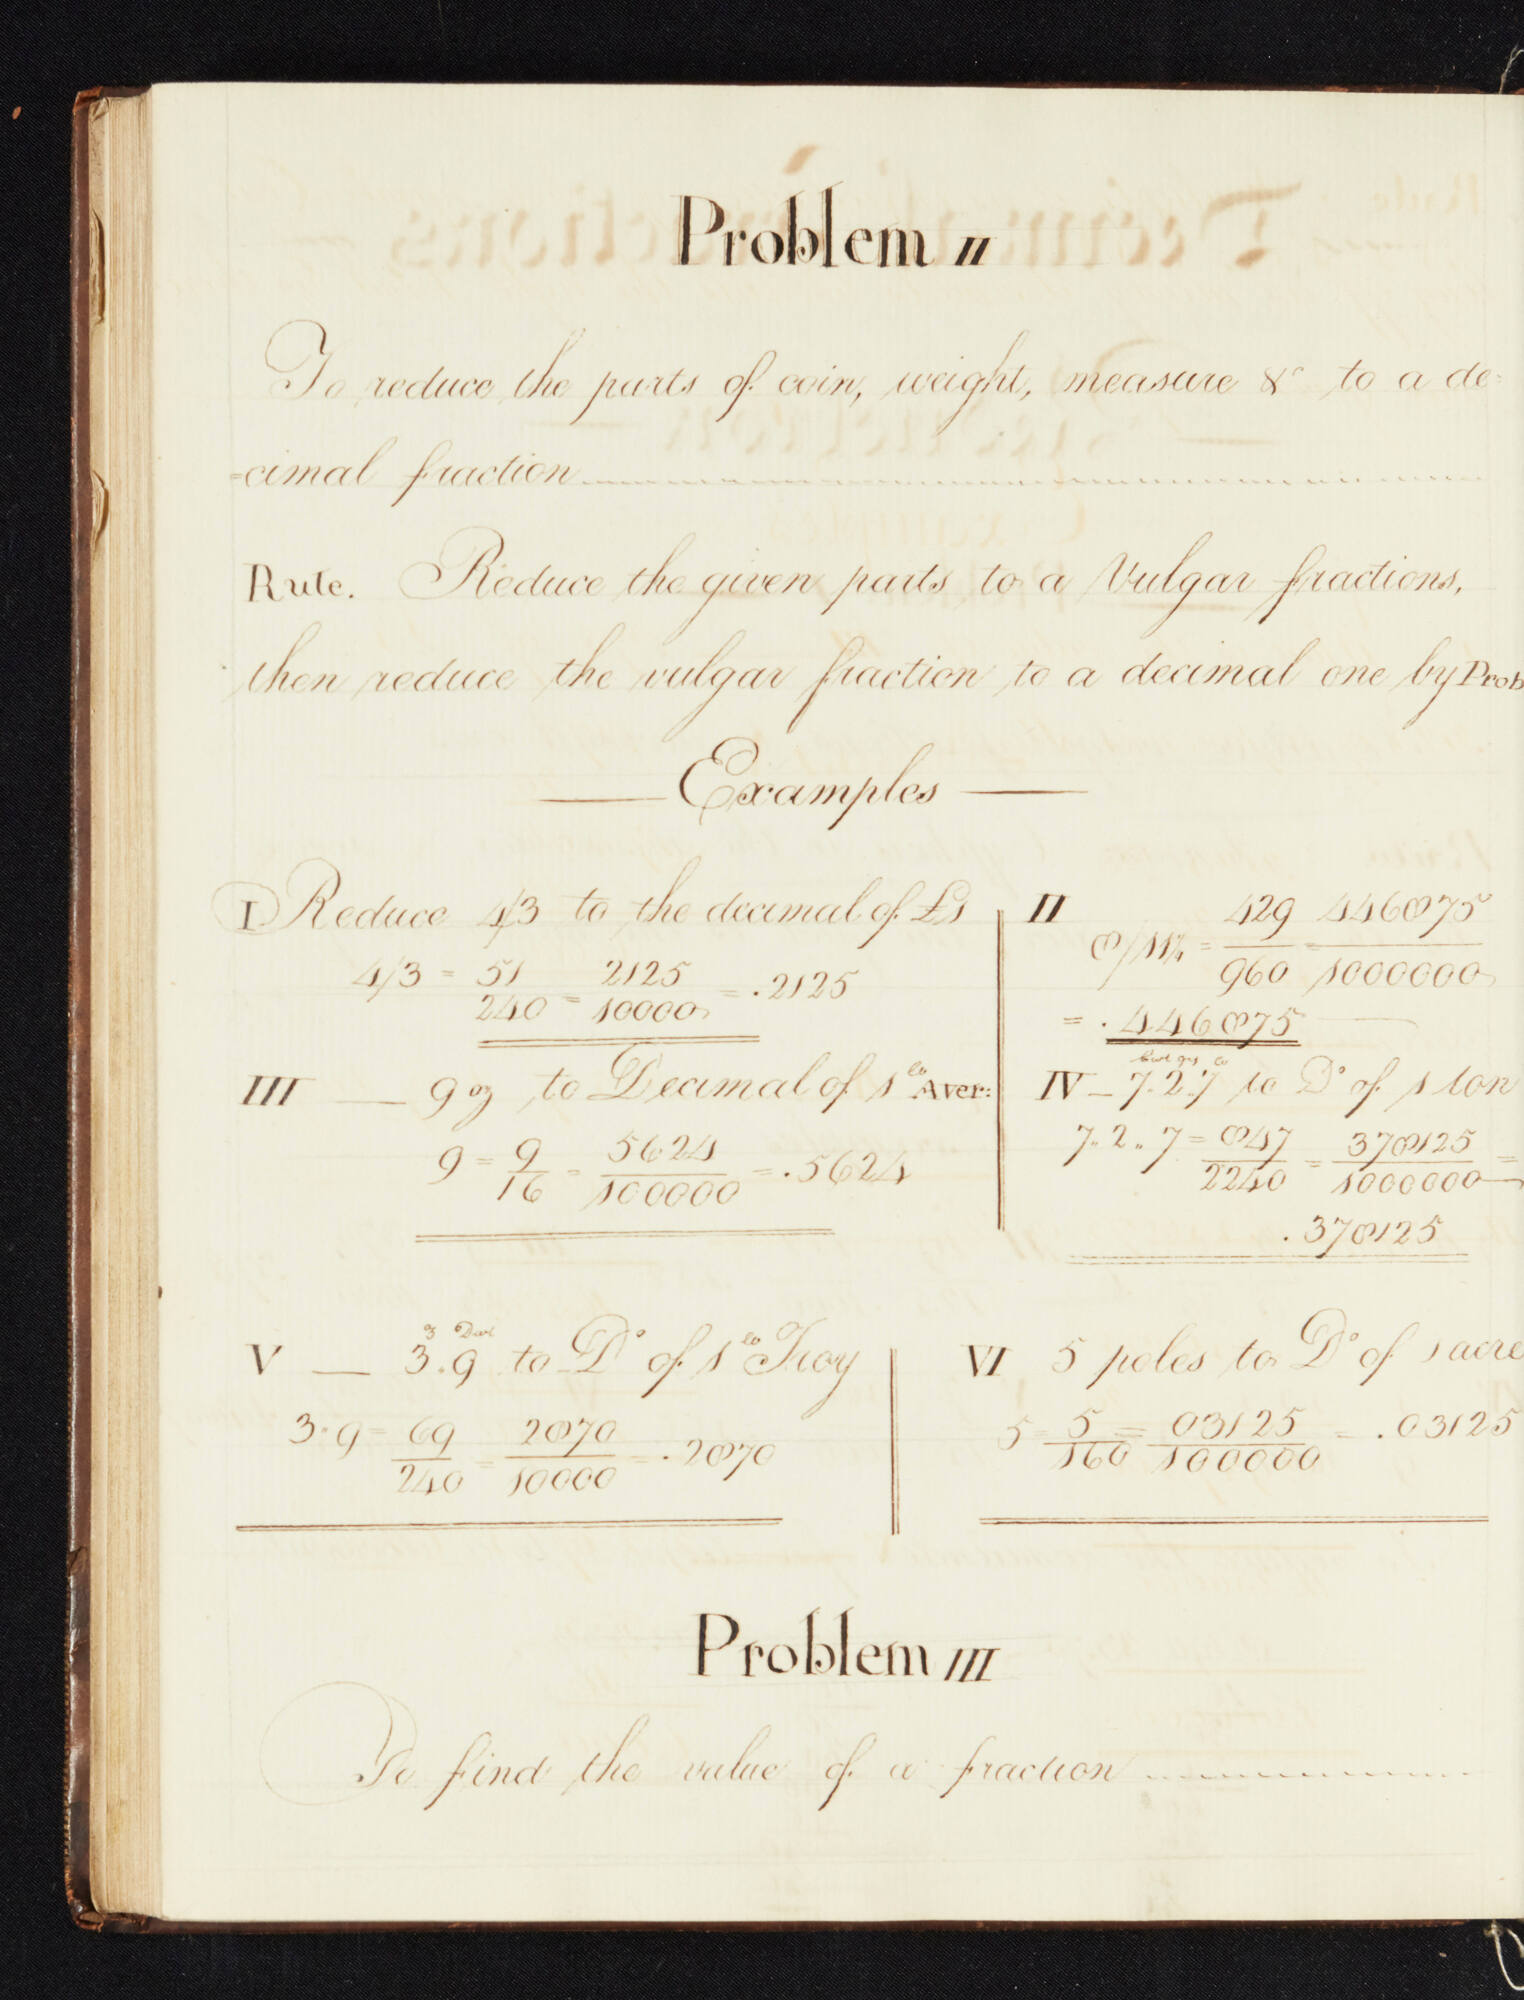 Problem II
To reduce the parts of coin, weight, measure &c to a de=
=cimal fraction
Rule. Reduce the given parts to a Vulgar fractions,
then reduce the vulgar fraction to a decimal one by Prob
Examples
I Reduce 4/3 to the decimal of £1
4/3 = 51/240 = 2125/10000 = .2125
II
8/11¼ = 429/960 = 446875/1000000
= .446875
III — 9 oz to Decimal of 1 lb Aver:
9 = 9/16 = 5624/100000 = .5624
IV — 7. 2. 7 to Do of 1 ton
7.. 2.. 7 = 847/2240 = 378125/1000000 =
.378125
V — 3 . 9 to Do of 1 lb Troy
3 . 9 = 69/240 = 2870/10000 = .2870
VI 5 poles to Do of 1 acre
5 = 5/160 = 03125/100000 = .03125
Problem III
To find the value of a fraction